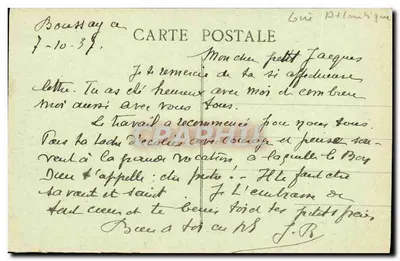 Boussay
7-10-37.
Loire Atlantique
CARTE POSTALE
Mon cher petit Jacques
Je te remercie de ta si affectueuse
lettre. Tu as été heureux avec moi et combien
moi aussi avec vous tous.
Le travail a recommencé pour nous tous.
Fais ta avec courage et pense sou-
vent à la grande vocation à laquelle le Bon
Dieu t'appelle : Il te faut être
savant et saint. Je t'embrasse de
tout coeur et te bénis toi et tes petits frères
Bien à toi en
J. R